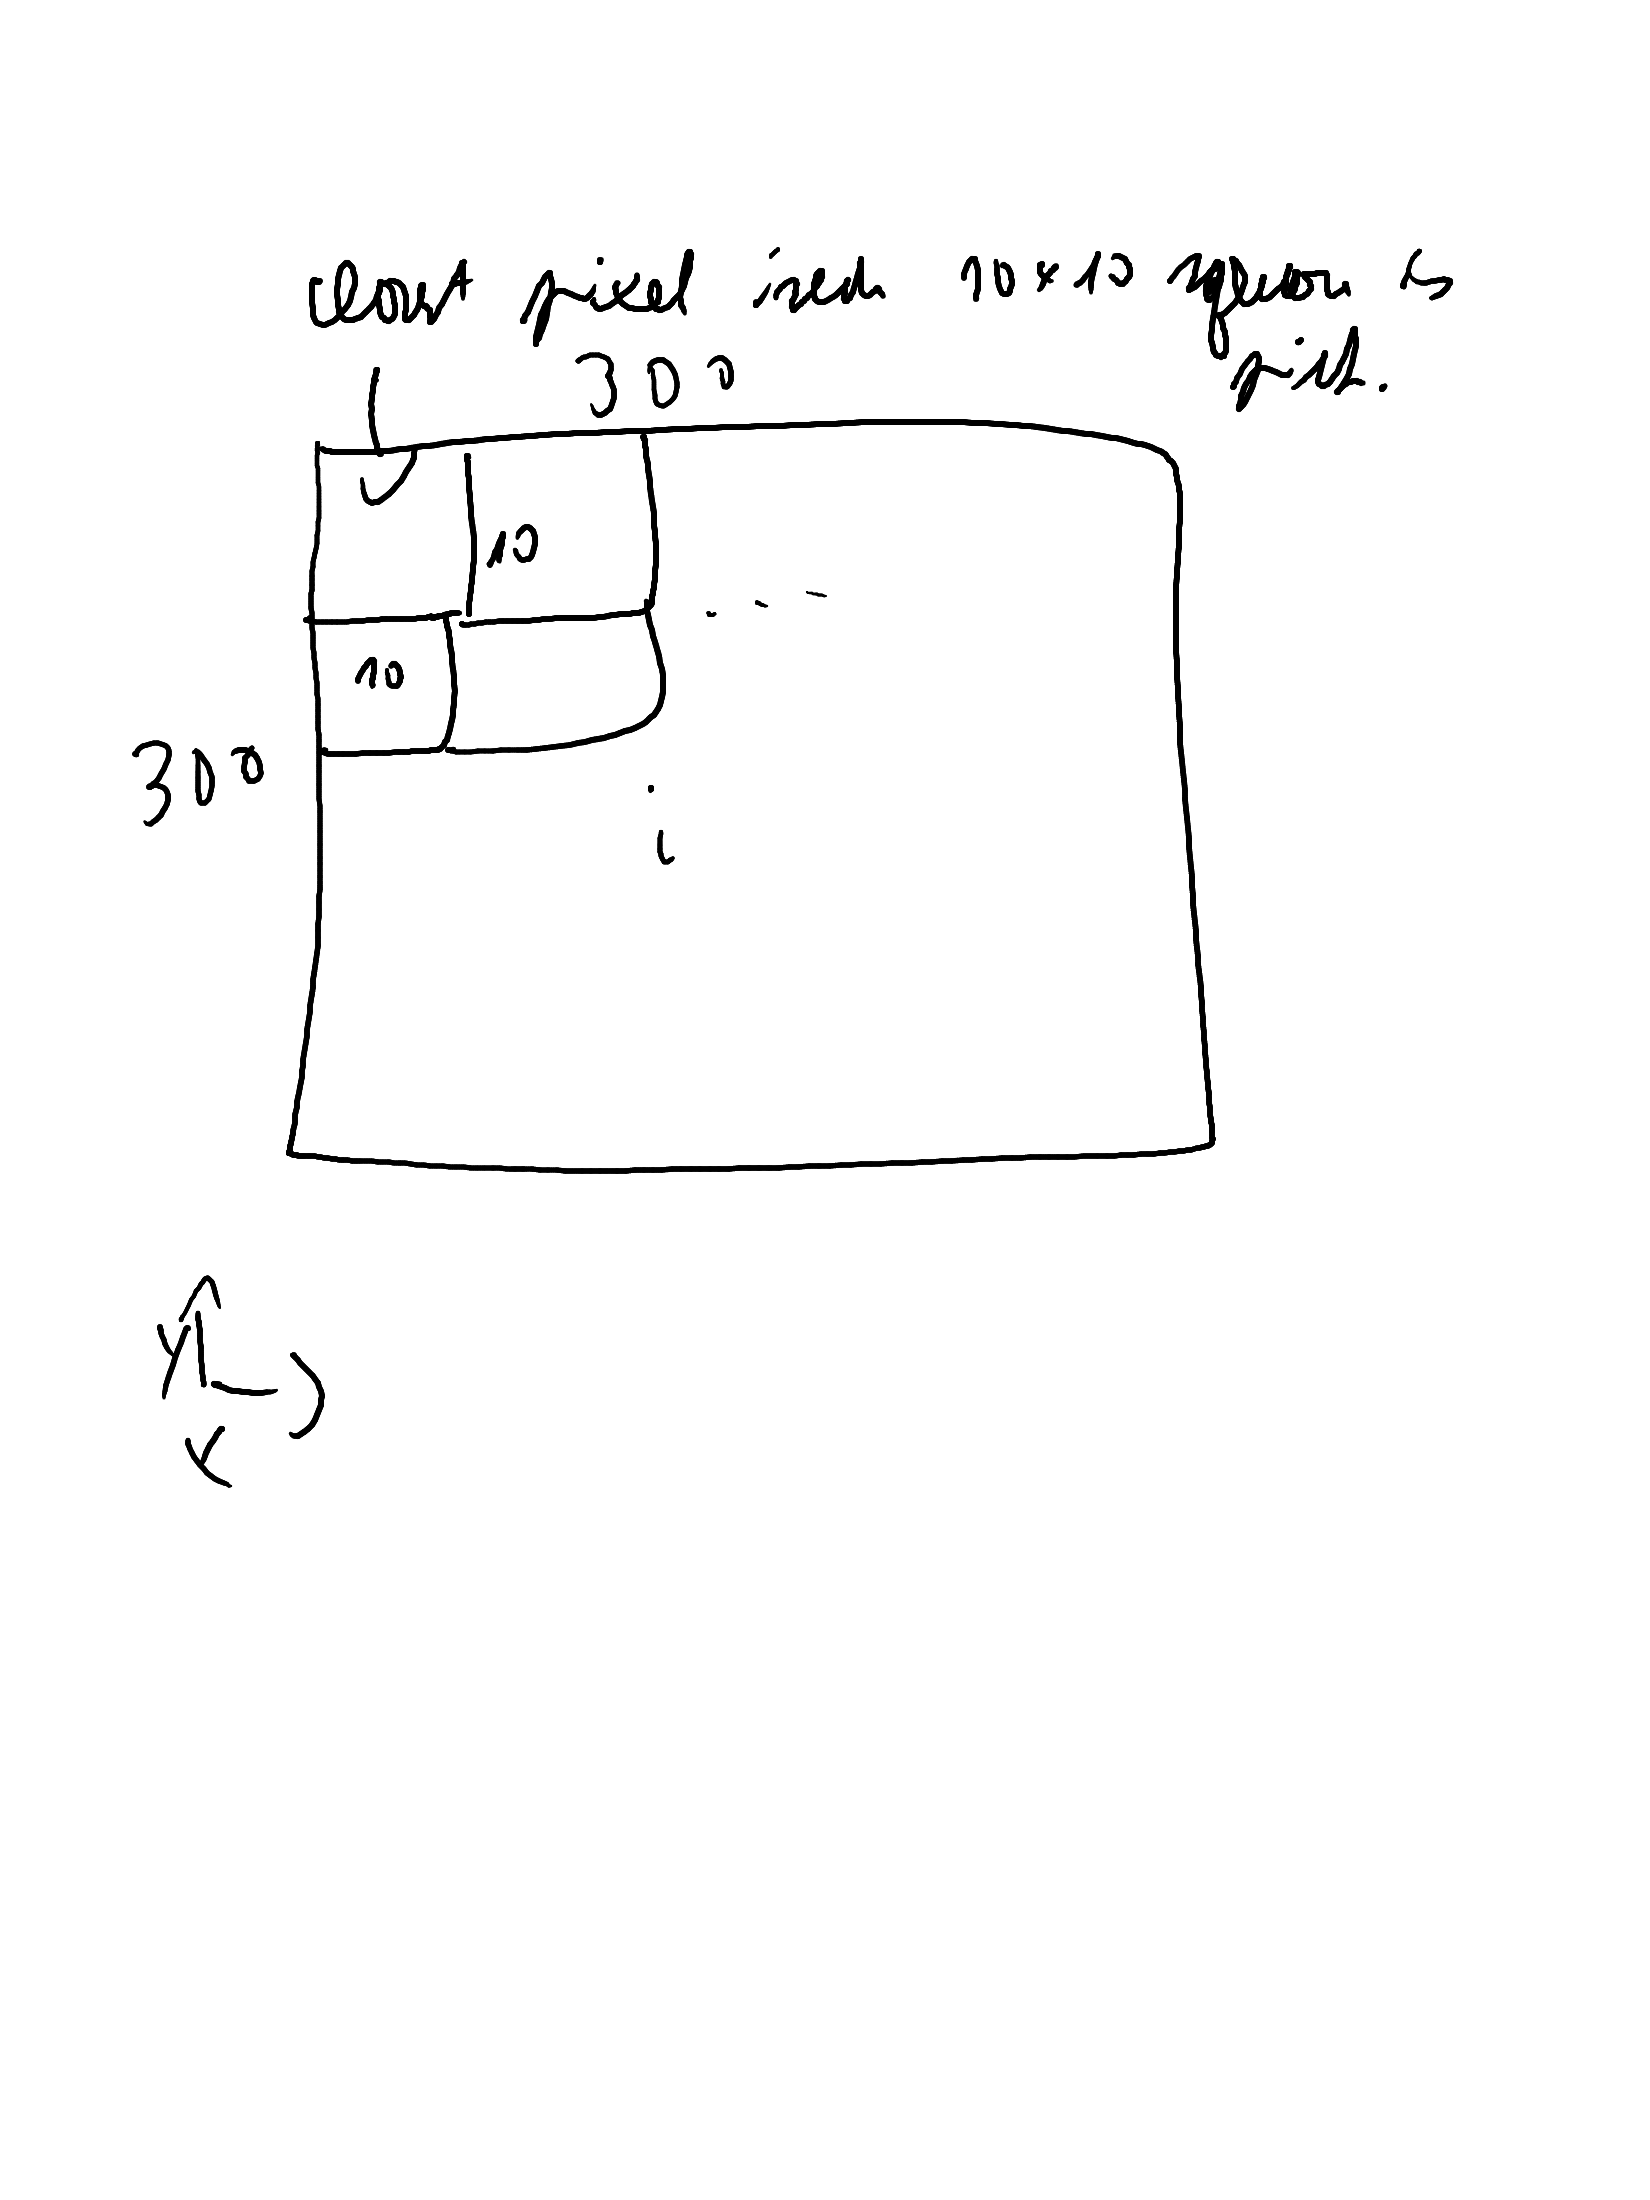 closest pixel in each 10x10 square is
pick.
300
10
10
300
y
x